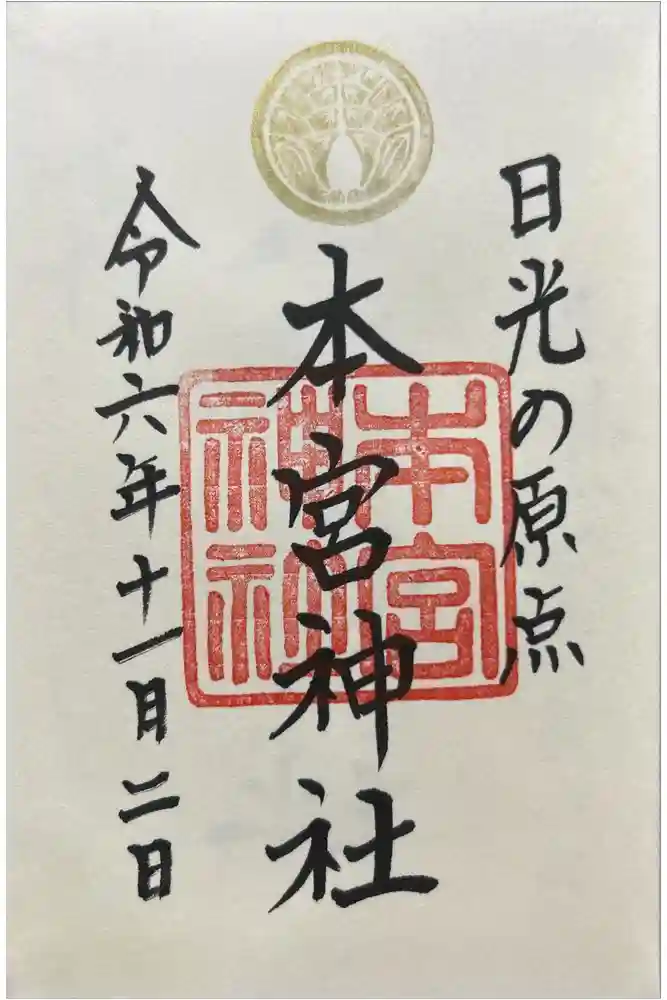 日光の原点
本宮神社
本宮神社
令和六年十一月二日